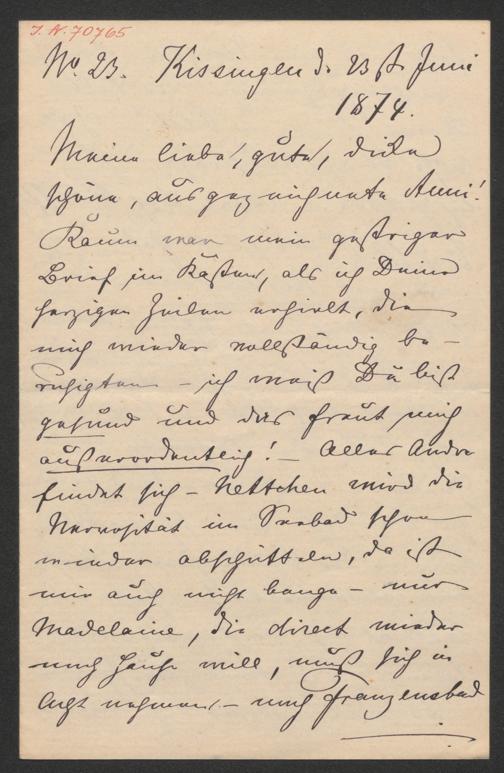 J. N. 70765
No. 23. Kissingen d. 23st Juni
1874.
Meine liebe, gute, dicke
schöne, ausgezeichnete Anni!
Kaum war mein gestriger
Brief im Kasten, als ich Deine
herzigen Zeilen erhielt, die
mich wieder vollständig be-
ruhigten – ich weiß Du bist
gesund und das freut mich
außerordentlich! – Alles Andre
findet sich – Nettchen wird die
Nervosität im Seebad schon
wieder abschütteln, da ist
mir auch nicht bange – nur
Madelaine, die direct wieder
nach Hause will, muß sich in
Acht nehmen – nach Franzensbad